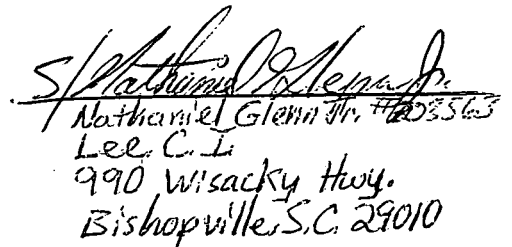 S/Nathaniel Glenn Jr.
Nathaniel Glenn Jr. #203563
Lee C.I.
990 Wisacky Hwy.
Bishopville, S.C. 29010